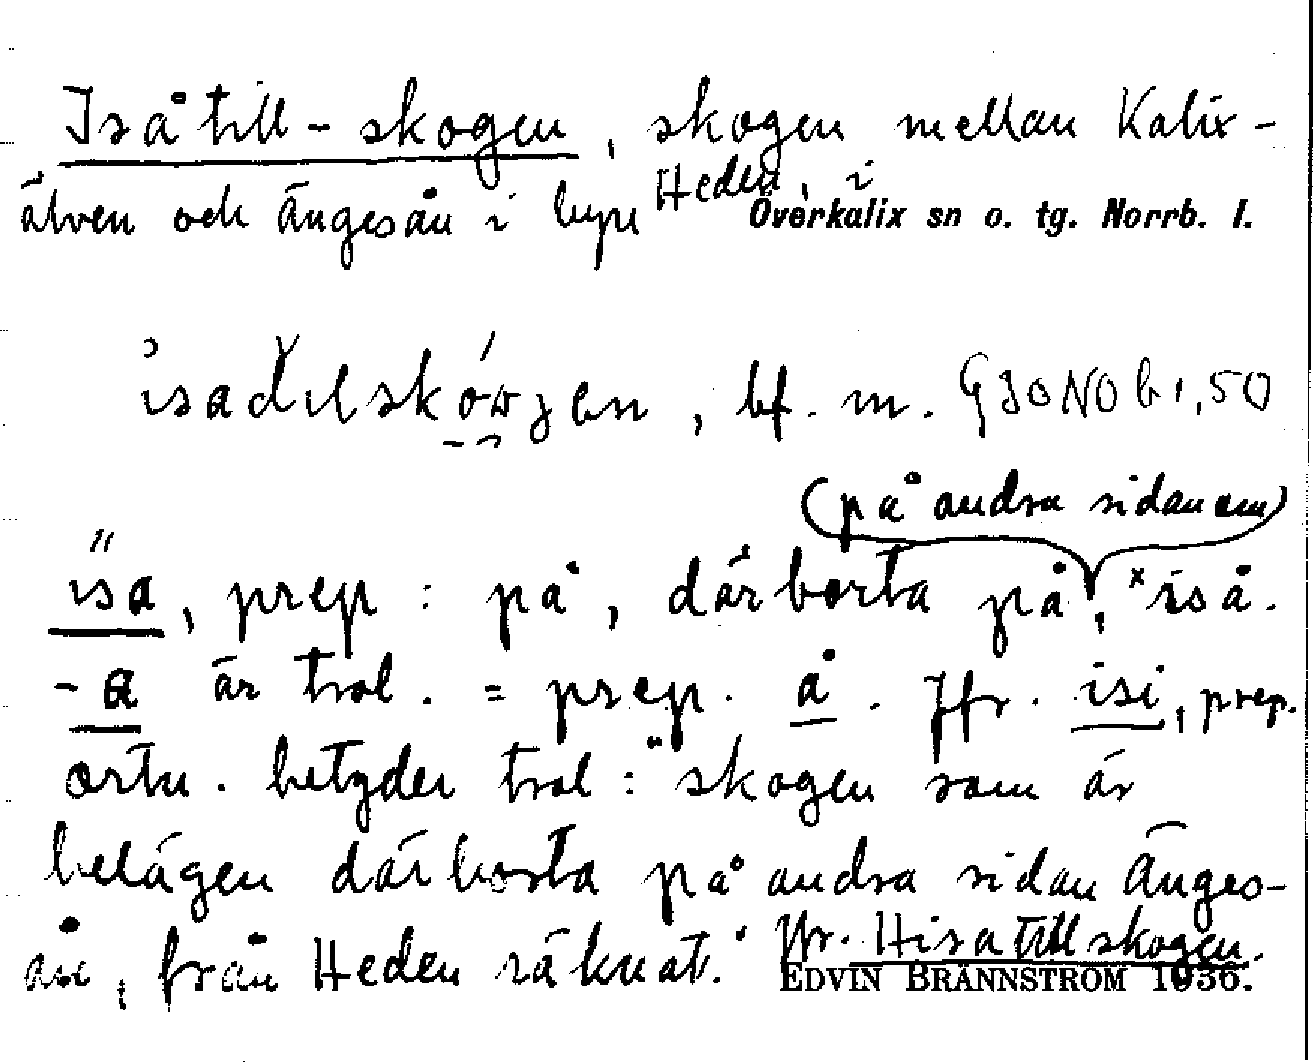 Isåtill-skogen, skogen mellan Kalix-
älven och Ängesån i byn Heden, i
Överkalix sn o. tg. Norrb. l.
bf. m. G30NOb1,50
(på andra sidan om)
isa, prep: på, därborta på, ˣiså.
-a är trol. = prep. å. Jfr. isi, prep.
ortn. betyder trol: "skogen som är
belägen därborta på andra sidan Änges-
ån, från Heden räknat." Jfr. Hisatillskogen.
EDVIN BRÄNNSTRÖM 1936.